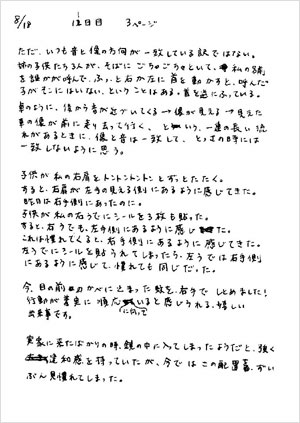 8/18 12日目 3ページ
ただ、いつも音と像の方向が一致している訳ではない。
妹の子供たち3人が、そばにごちゃごちゃといて、私の名前
を誰かが呼んで、ふっと右か左に首を動かすと、呼んだ
子がそこにはいない、ということはある。首を追ふっている。
車のように、後から音が近づいてくる→像が見える→見えた
車の像が前に走り去って行く、という、一連の長い流
れがあるときに、像と音は一致して、とっさの時には
一致しないように思う。
子供が私の右肩をトントントントンとずっとたたく。
すると、右肩が左手の見える側にあるように感じてきた。
昨日は右手側にあったのに。
子供が私の右うでにシールを3枚も貼った。
すると、右うでも、左手側にあるように感じた。
これは慣れてくると、右手側にあるように感じてきた。
左うでにシールを貼うれてしまったら、左うでは右手側
にあるように感じて、慣れても同じだった。
今、目の前のカベに止まった蚊を、右手でしとめました!
行動が着実に順応していると感じられる、嬉しい
出来事です。
実家に来たばかりの時、鏡の中に入ってしまったようだと、強く
違和感を持っていたが、今ではこの配置も、ずい
ぶん見慣れてしまった。